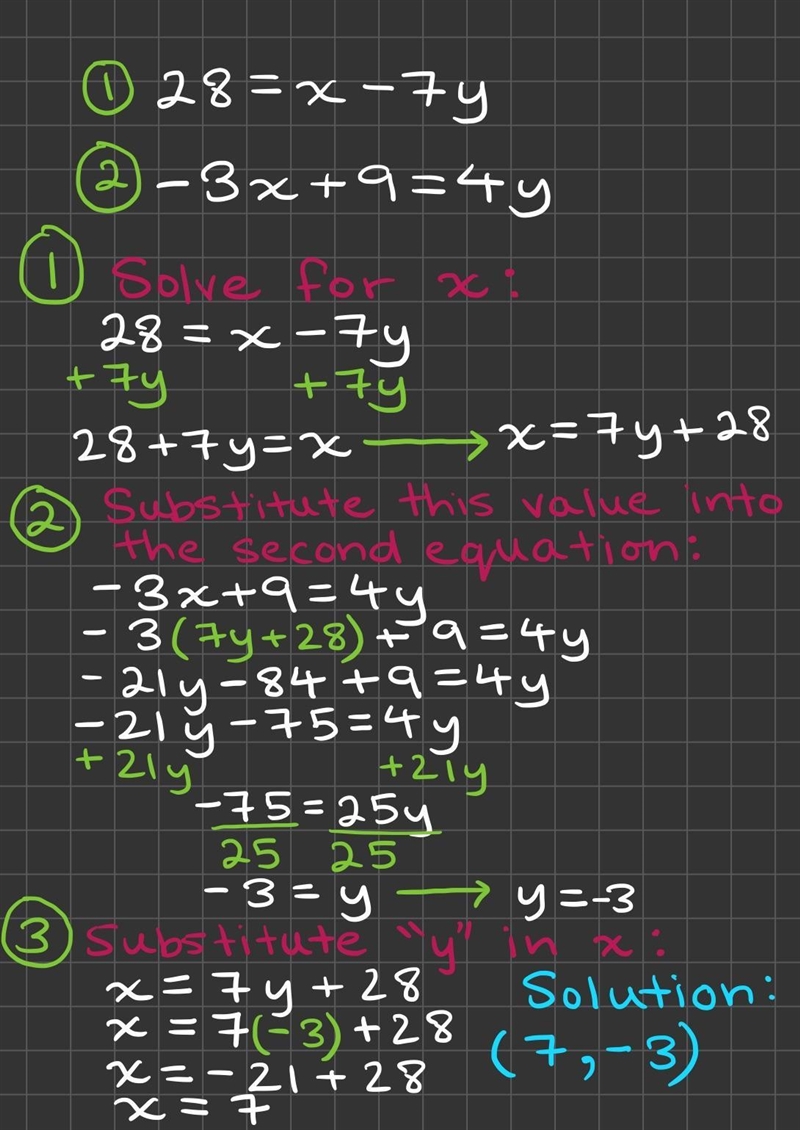 ① 28 = x - 7y
② -3x + 9 = 4y
① Solve for x:
28 = x - 7y
+7y +7y
28 + 7y = x → x = 7y + 28
② Substitute this value into
the second equation:
-3x + 9 = 4y
-3(7y + 28) + 9 = 4y
-21y - 84 + 9 = 4y
-21y - 75 = 4y
+21y +21y
-75 = 25y
25 25
-3 = y → y = -3
③ Substitute "y" in x:
x = 7y + 28
x = 7(-3) + 28
x = -21 + 28
x = 7
Solution:
(7, -3)